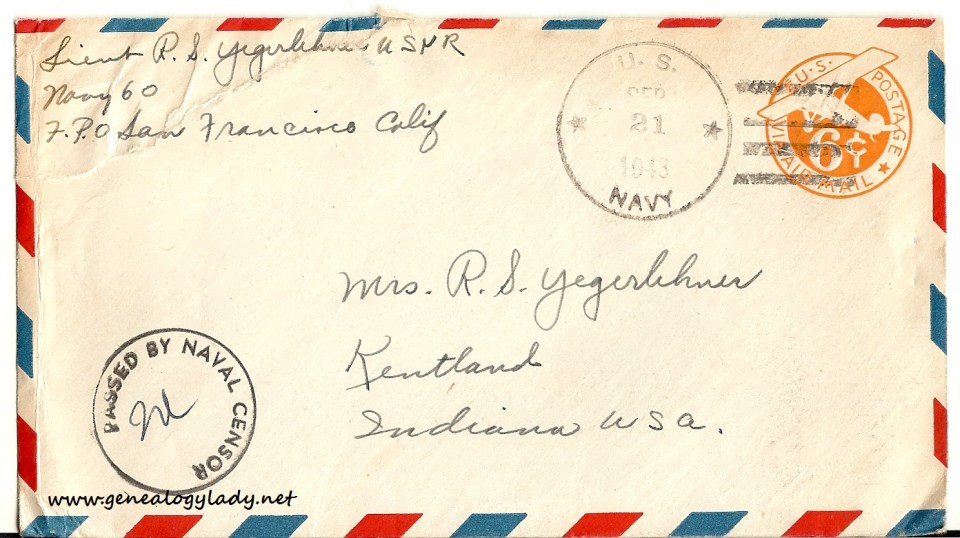 Lieut R. S. Yegerlehner USNR
Navy 60
F.P.O San Francisco Calif
U. S.
SEP
21
1943
NAVY
U.S. POSTAGE
VIA AIR MAIL
6¢
Mrs. R. S. Yegerlehner
Kentland
Indiana USA.
PASSED BY NAVAL CENSOR
www.genealogylady.net